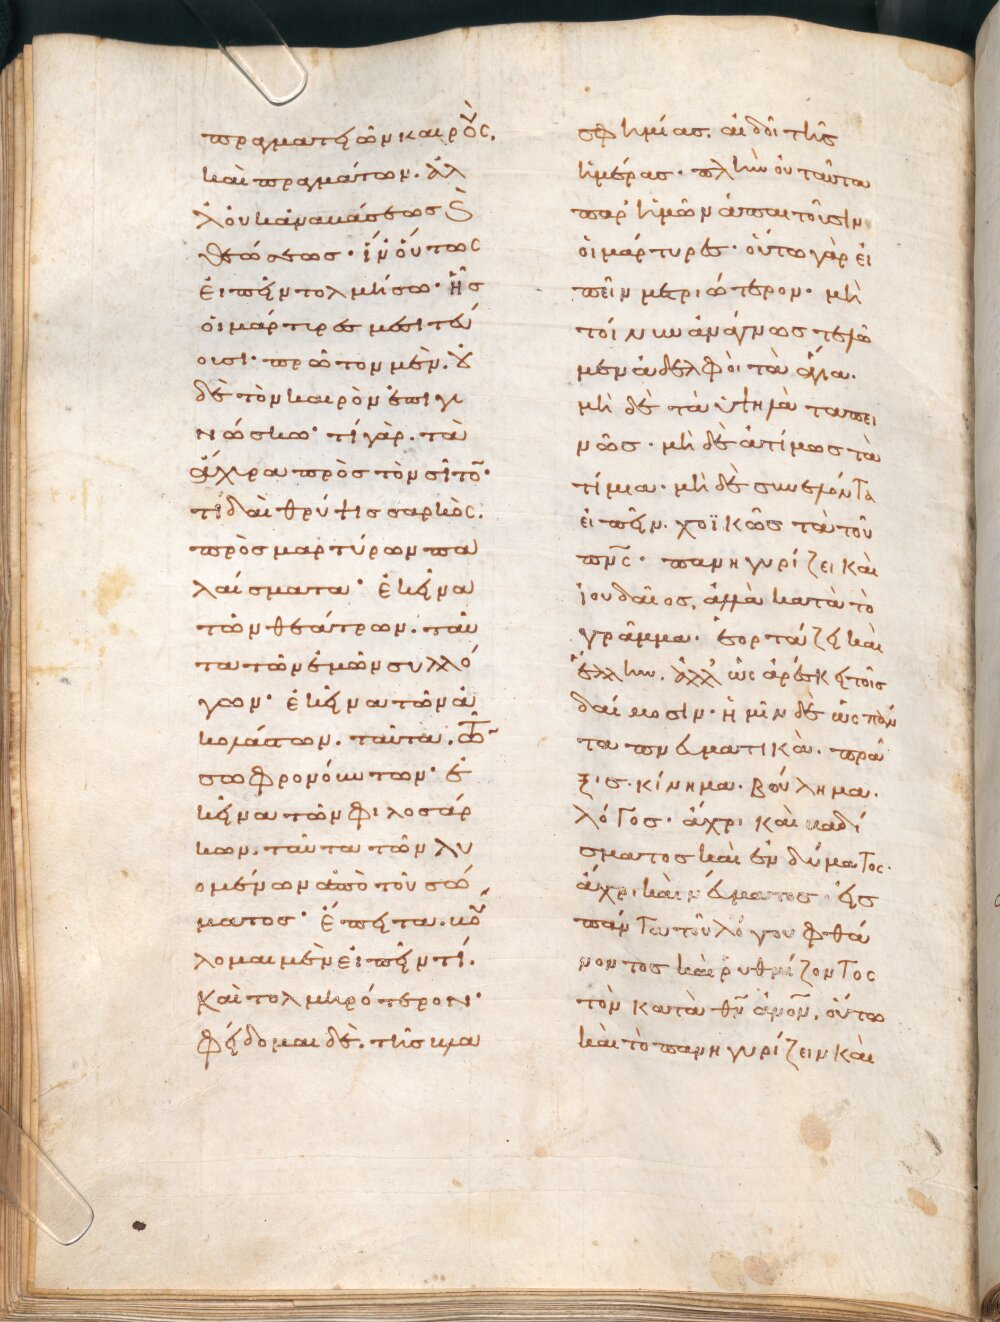 πραγματειῶν καιρὸς.
καὶ πραγμάτων. ἀλ
λὸν καὶ ἀναμάσεως
θεώσεως· ἵν' οὕτως
εἰπεῖν τολμήσω· ἧς
οἱ μάρτιρες μεσιτεύ
οισι· πρῶτον μὲν. οὐ
δὲ τὸν καιρὸν ἐπιγι
νώσκω· τί γὰρ. τὰ
ἄχιρα πρὸς τὸν σῖτον·
τί δαὶ θρύψις σαρκὸς.
πρὸς μαρτύρων πα
λαίσματα· ἐκεῖνα
τῶν θεάτρων. ταῦ
τα τῶν ἐμῶν συλλό
γων· ἐκεῖνα τῶν ἀ
κολάστων. ταῦτα. τῶν
σωφρονόυντων· ἐ
κεῖνα τῶν φιλοσάρ
κων. ταῦτα τῶν λυ
ομένων ἀπὸ τοῦ σώ
ματος· Ἔπειτα. βού
λομαι μὲν εἰπεῖν τί.
καὶ τολμηρότερον·
φείδομαι δὲ. τῆς βλα
σφημίας. αἰδοῖ τῆς
ἡμέρας· πλὴν οὐ ταῦτα
παρ' ἡμῶν ἀπαιτοῦσιν
οἱ μάρτυρες· οὕτω γὰρ εἰ
πεῖν μετριώτερον· μὴ
τοίνυν ἀνάγνως τελῶ
μεν ἀδελφοὶ τὰ ἅγια.
μὴ δὲ τὰ ὑψηλὰ ταπει
νῶς· μὴ δὲ ἀτίμως τὰ
τίμια· μὴ δὲ συνελόντα
εἰπεῖν. χοϊκῶς τὰ τοῦ
πνς· πανηγυρίζει καὶ
ἰουδαῖος, ἀλλὰ κατὰ τὸ
γράμμα· ἑορτάζει καὶ
ἕλλην. ἀλλ' ὡς ἀρέσκει τοῖς
δαίμοσιν· ἡμῖν δὲ ὡς πάν
τα πνευματικὰ. πρᾶ
ξις· κίνημα· βούλημα.
λόγος· ἄχρι καὶ βαδί
σματος καὶ ἐνδύματος·
ἄχρι καὶ νεύματος· εἰς
πάντα τοῦ λόγου φθά
νοντος καὶ ῥυθμίζοντος
τὸν κατὰ θν ἄνον. οὕτω
καὶ τὸ πανηγυρίζειν καὶ